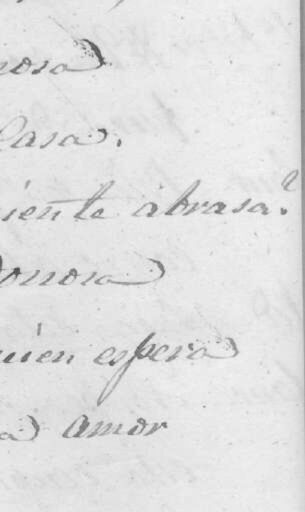 nosa
Casa.
iente abrasa?
Donosa
uien espera
a amor